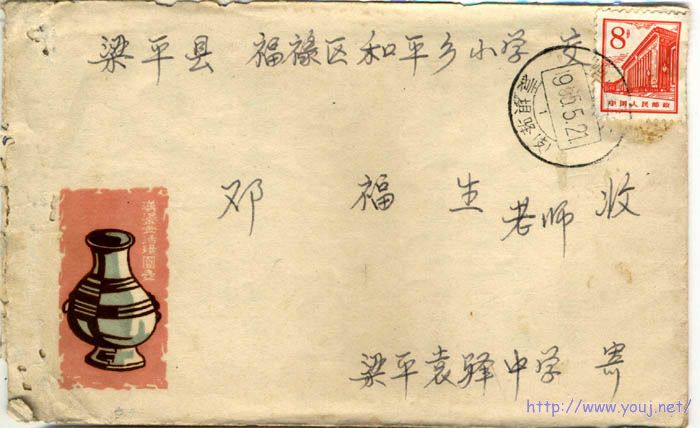 梁平县 福禄区和平乡小学 交
8分
中国人民邮政
1965.5.21
邓福生老师 收
梁平袁驿中学 寄
http://www.youj.net/